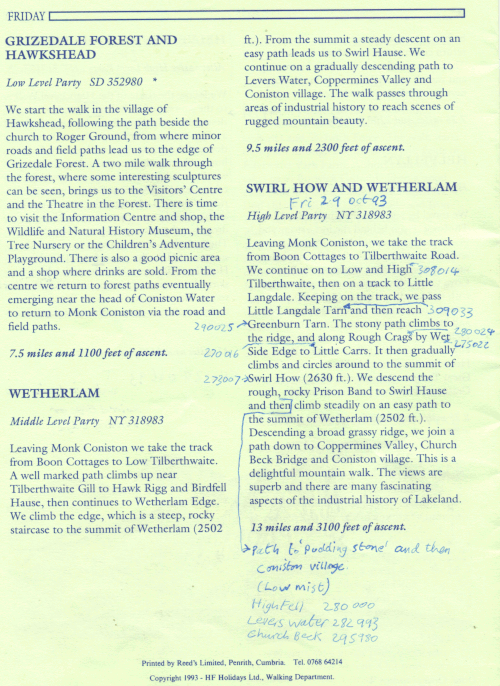 FRIDAY
GRIZEDALE FOREST AND
HAWKSHEAD
Low Level Party SD 352980 *
We start the walk in the village of
Hawkshead, following the path beside the
church to Roger Ground, from where minor
roads and field paths lead us to the edge of
Grizedale Forest. A two mile walk through
the forest, where some interesting sculptures
can be seen, brings us to the Visitors' Centre
and the Theatre in the Forest. There is time
to visit the Information Centre and shop, the
Wildlife and Natural History Museum, the
Tree Nursery or the Children's Adventure
Playground. There is also a good picnic area
and a shop where drinks are sold. From the
centre we return to forest paths eventually
emerging near the head of Coniston Water
to return to Monk Coniston via the road and
field paths.
7.5 miles and 1100 feet of ascent.
WETHERLAM
Middle Level Party NY 318983
Leaving Monk Coniston we take the track
from Boon Cottages to Low Tilberthwaite.
A well marked path climbs up near
Tilberthwaite Gill to Hawk Rigg and Birdfell
House, then continues to Wetherlam Edge.
We climb the edge, which is a steep, rocky
staircase to the summit of Wetherlam (2502
ft.). From the summit a steady descent on an
easy path leads us to Swirl Hause. We
continue on a gradually descending path to
Levers Water, Coppermines Valley and
Coniston village. The walk passes through
areas of industrial history to reach scenes of
rugged mountain beauty.
9.5 miles and 2300 feet of ascent.
SWIRL HOW AND WETHERLAM
Fri 29 oct 93
High Level Party NY 318983
Leaving Monk Coniston, we take the track
from Boon Cottages to Tilberthwaite Road.
We continue on to Low and High 308014
Tilberthwaite, then on a track to Little
Langdale. Keeping on the track, we pass
Little Langdale Tarn and then reach 309033
290025 Greenburn Tarn. The stony path climbs to
the ridge, and along Rough Crags by Wet 280024
275022
270016 Side Edge to Little Carrs. It then gradually
climbs and circles around to the summit of
273007 Swirl How (2630 ft.). We descend the
rough, rocky Prison Band to Swirl Hause
and then climb steadily on an easy path to
the summit of Wetherlam (2502 ft.).
Descending a broad grassy ridge, we join a
path down to Coppermines Valley, Church
Beck Bridge and Coniston village. This is a
delightful mountain walk. The views are
superb and there are many fascinating
aspects of the industrial history of Lakeland.
13 miles and 3100 feet of ascent.
Path to 'Pudding stone' and then
Coniston village
(Low mist)
High Fell 280 000
Levers water 282 993
Church Beck 295980
Printed by Reed's Limited, Penrith, Cumbria. Tel. 0768 64214
Copyright 1993 - HF Holidays Ltd., Walking Department.